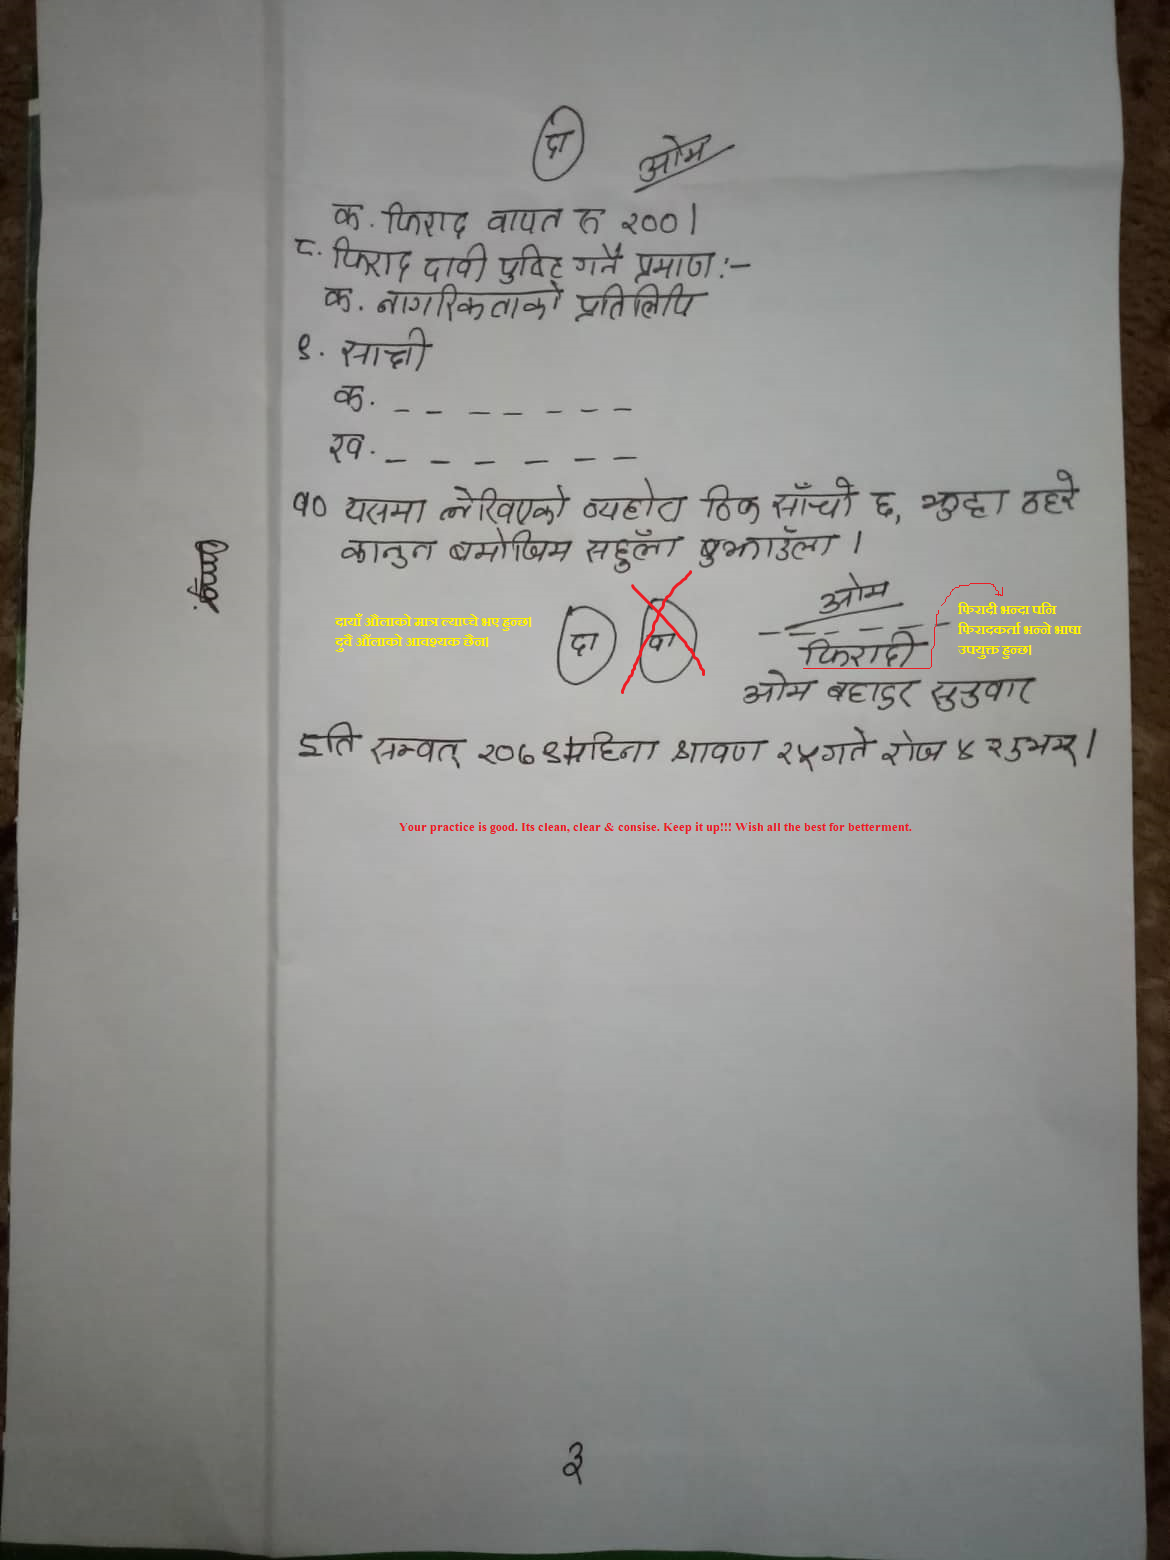 दा
ओम
क. फिराद वापत रु २००।
८. फिराद दावी पुष्टि गर्ने प्रमाण:-
क. नागरिकताको प्रतिलिपि
९. साक्षी
क. _ _ _ _ _ _ _
ख. _ _ _ _ _ _
१० यसमा लेखिएको व्यहोरा ठिक साँचो छ, झुट्टा ठहरे
कानुन बमोजिम सहुँला बुझाउँला ।
दायाँ औलाको मात्र ल्याप्चे भए हुन्छ।
दुवै औंलाको आवश्यक छैन।
दा
ओम
फिरादी
ओम बहादुर सुनुवार
फिरादी भन्दा पनि
फिरादकर्ता भन्ने भाषा
उपयुक्त हुन्छ।
इति सम्वत् २०७९ महिना श्रावण २५ गते रोज ४ शुभम्।
Your practice is good. Its clean, clear & consise. Keep it up!!! Wish all the best for betterment.
३